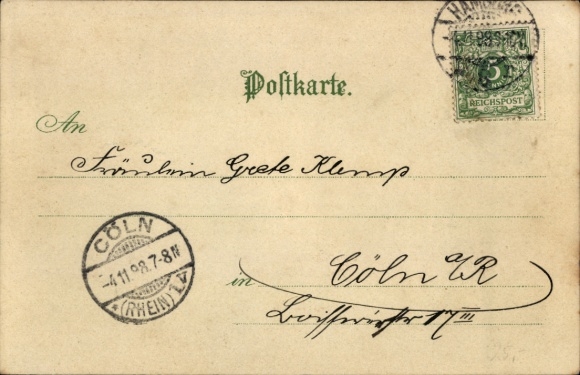 HAMBURG
5
REICHSPOST
Postkarte.
An
Fräulein Grete Klemp
CÖLN
-4.11.98.7-8N
*(RHEIN)1.
in Cöln a/R
17 III